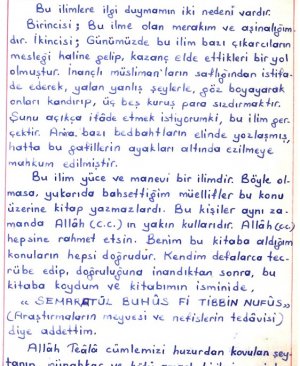 Bu ilimlere ilgi duymamın iki nedeni vardır.
Birincisi; Bu ilme olan merakım ve aşinalığım-
dır. İkincisi; Günümüzde bu ilim bazı çıkarcıların
mesleği haline gelip, kazanç elde ettikleri bir yol
olmuştur. İnançlı müslüman'ların saflığından istifa-
de ederek, yalan yanlış şeylerle, göz boyayarak
onları kandırıp, üç beş kuruş para sızdırmaktır.
Şunu açıkça ifade etmek istiyorumki, bu ilim ger-
çektir. Ama bazı bedbahtların elinde yozlaşmış,
hatta bu gafillerin ayakları altında ezilmeye
mahkum edilmiştir.
Bu ilim yüce ve manevi bir ilimdir. Böyle ol-
masa, yukarıda bahsettiğim müellifler bu konu
üzerine kitap yazmazlardı. Bu kişiler aynı za-
manda Allâh (c.c.) ın yakın kullarıdır. Allâh (cc)
hepsine rahmet etsin. Benim bu kitaba aldığım
konuların hepsi doğrudur. Kendim defalarca tec-
rübe edip, doğruluğuna inandıktan sonra, bu
kitaba koydum ve kitabımın isminide,
« SEMARATÜL BUHÛS Fİ TIBBİN NUFÛS»
(Araştırmaların meyvesi ve nefislerin tedavisi)
diye addettim.
Allâh Teâlâ cümlemizi huzurdan kovulan şey-